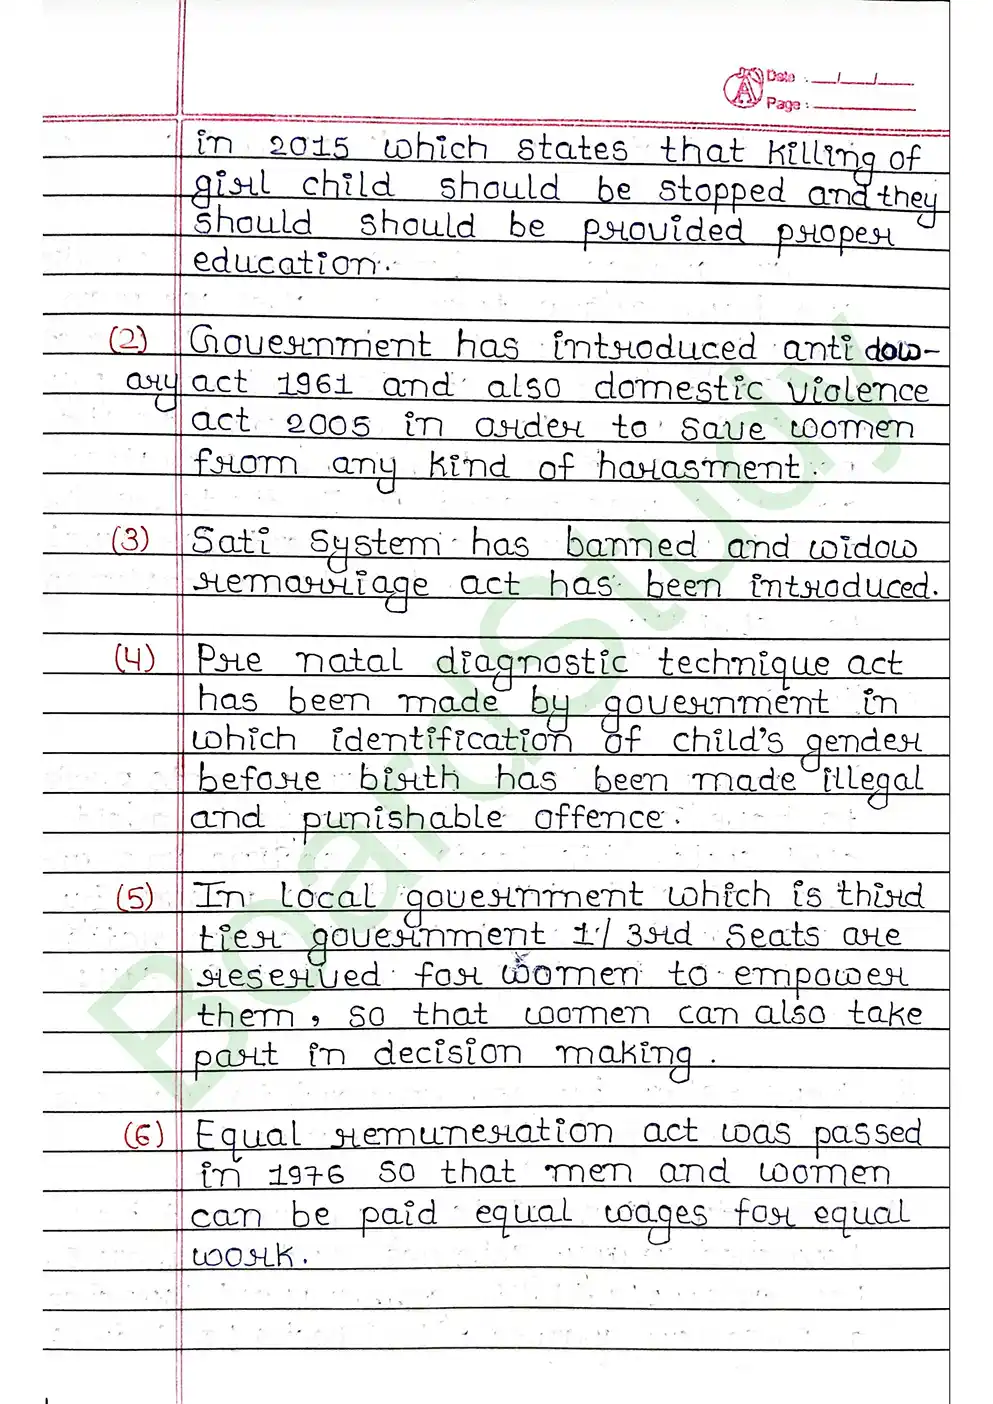 Date : __/__/__
Page :
in 2015 which states that killing of
girl child should be stopped and they
should should be provided proper
education.
(2) Government has introduced anti dow-
ary act 1961 and also domestic violence
act 2005 in order to save women
from any kind of harasment.
(3) Sati system has banned and widow
remarriage act has been introduced.
(4) Pre natal diagnostic technique act
has been made by government in
which identification of child's gender
before birth has been made illegal
and punishable offence.
(5) In local government which is third
tier government 1/3rd seats are
reserved for women to empower
them, so that women can also take
part in decision making.
(6) Equal remuneration act was passed
in 1976 so that men and women
can be paid equal wages for equal
work.
BoardStudy